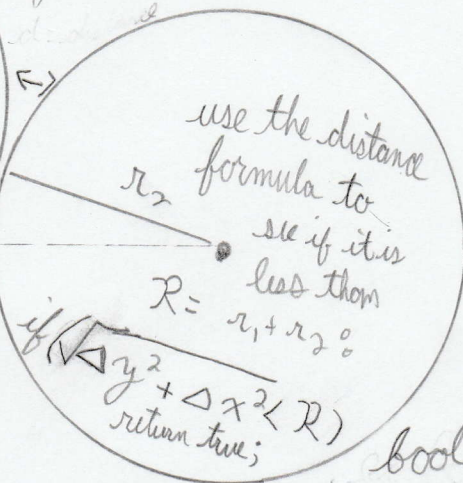 r₂
use the distance
formula to
see if it is
less than
R = r₁ + r₂:
if (√Δy² + Δx² < R)
return true;
bool